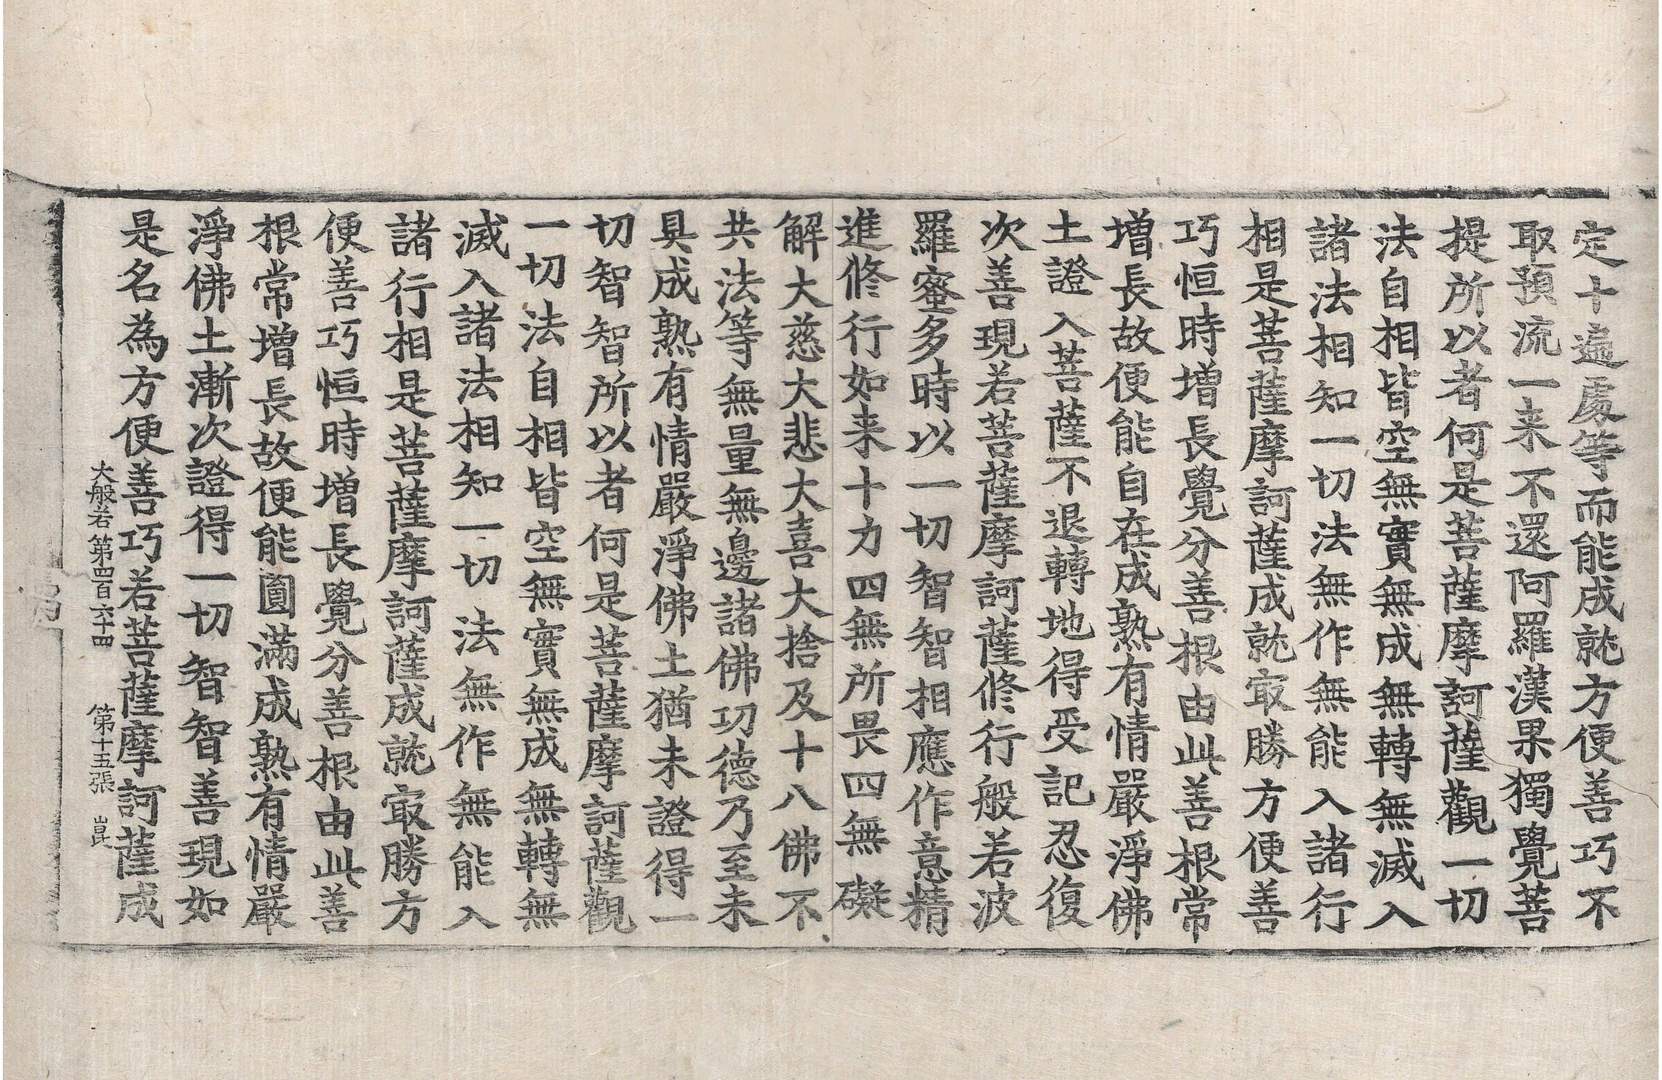 定十遍處等而能成就方便善巧不
取預流一来不還阿羅漢果獨覺菩
提所以者何是菩薩摩訶薩觀一切
法自相皆空無實無成無轉無滅入
諸法相知一切法無作無能入諸行
相是菩薩摩訶薩成就㝡勝方便善
巧恒時增長覺分善根由此善根常
增長故便能自在成熟有情嚴淨佛
土證入菩薩不退轉地得受記忍復
次善現若菩薩摩訶薩修行般若波
羅蜜多時以一切智智相應作意精
進修行如来十力四無所畏四無礙
解大慈大悲大喜大捨及十八佛不
共法等無量無邊諸佛功德乃至未
具成熟有情嚴淨佛土猶未證得一
切智智所以者何是菩薩摩訶薩觀
一切法自相皆空無實無成無轉無
滅入諸法相知一切法無作無能入
諸行相是菩薩摩訶薩成就㝡勝方
便善巧恒時增長覺分善根由此善
根常增長故便能圓滿成熟有情嚴
淨佛土漸次證得一切智智善現如
是名為方便善巧若菩薩摩訶薩成
大般若第四百六十四 第十五張 崑